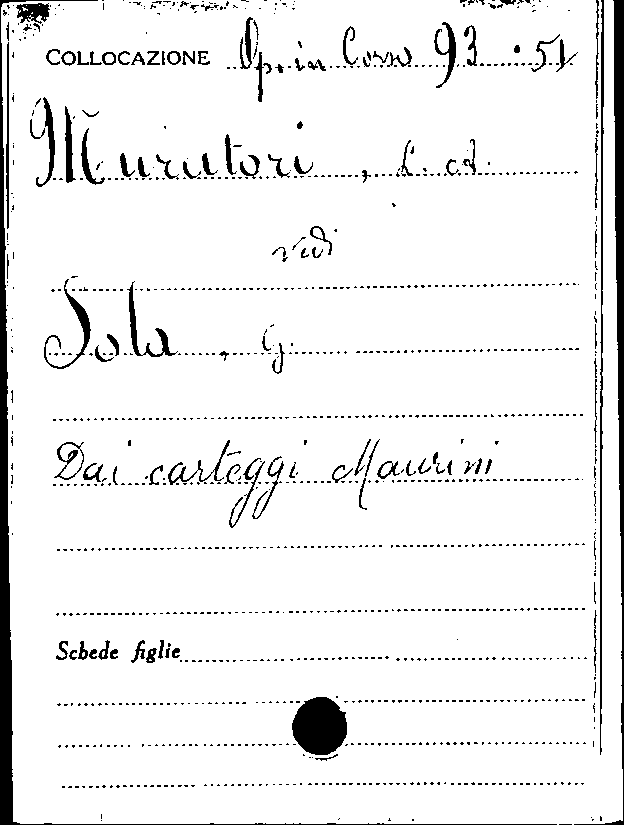 COLLOCAZIONE Op. in Corso 93 . 51
Muratori, L. A.
vidi
Sola, G.
Dai carteggi Maurini
Schede figlie